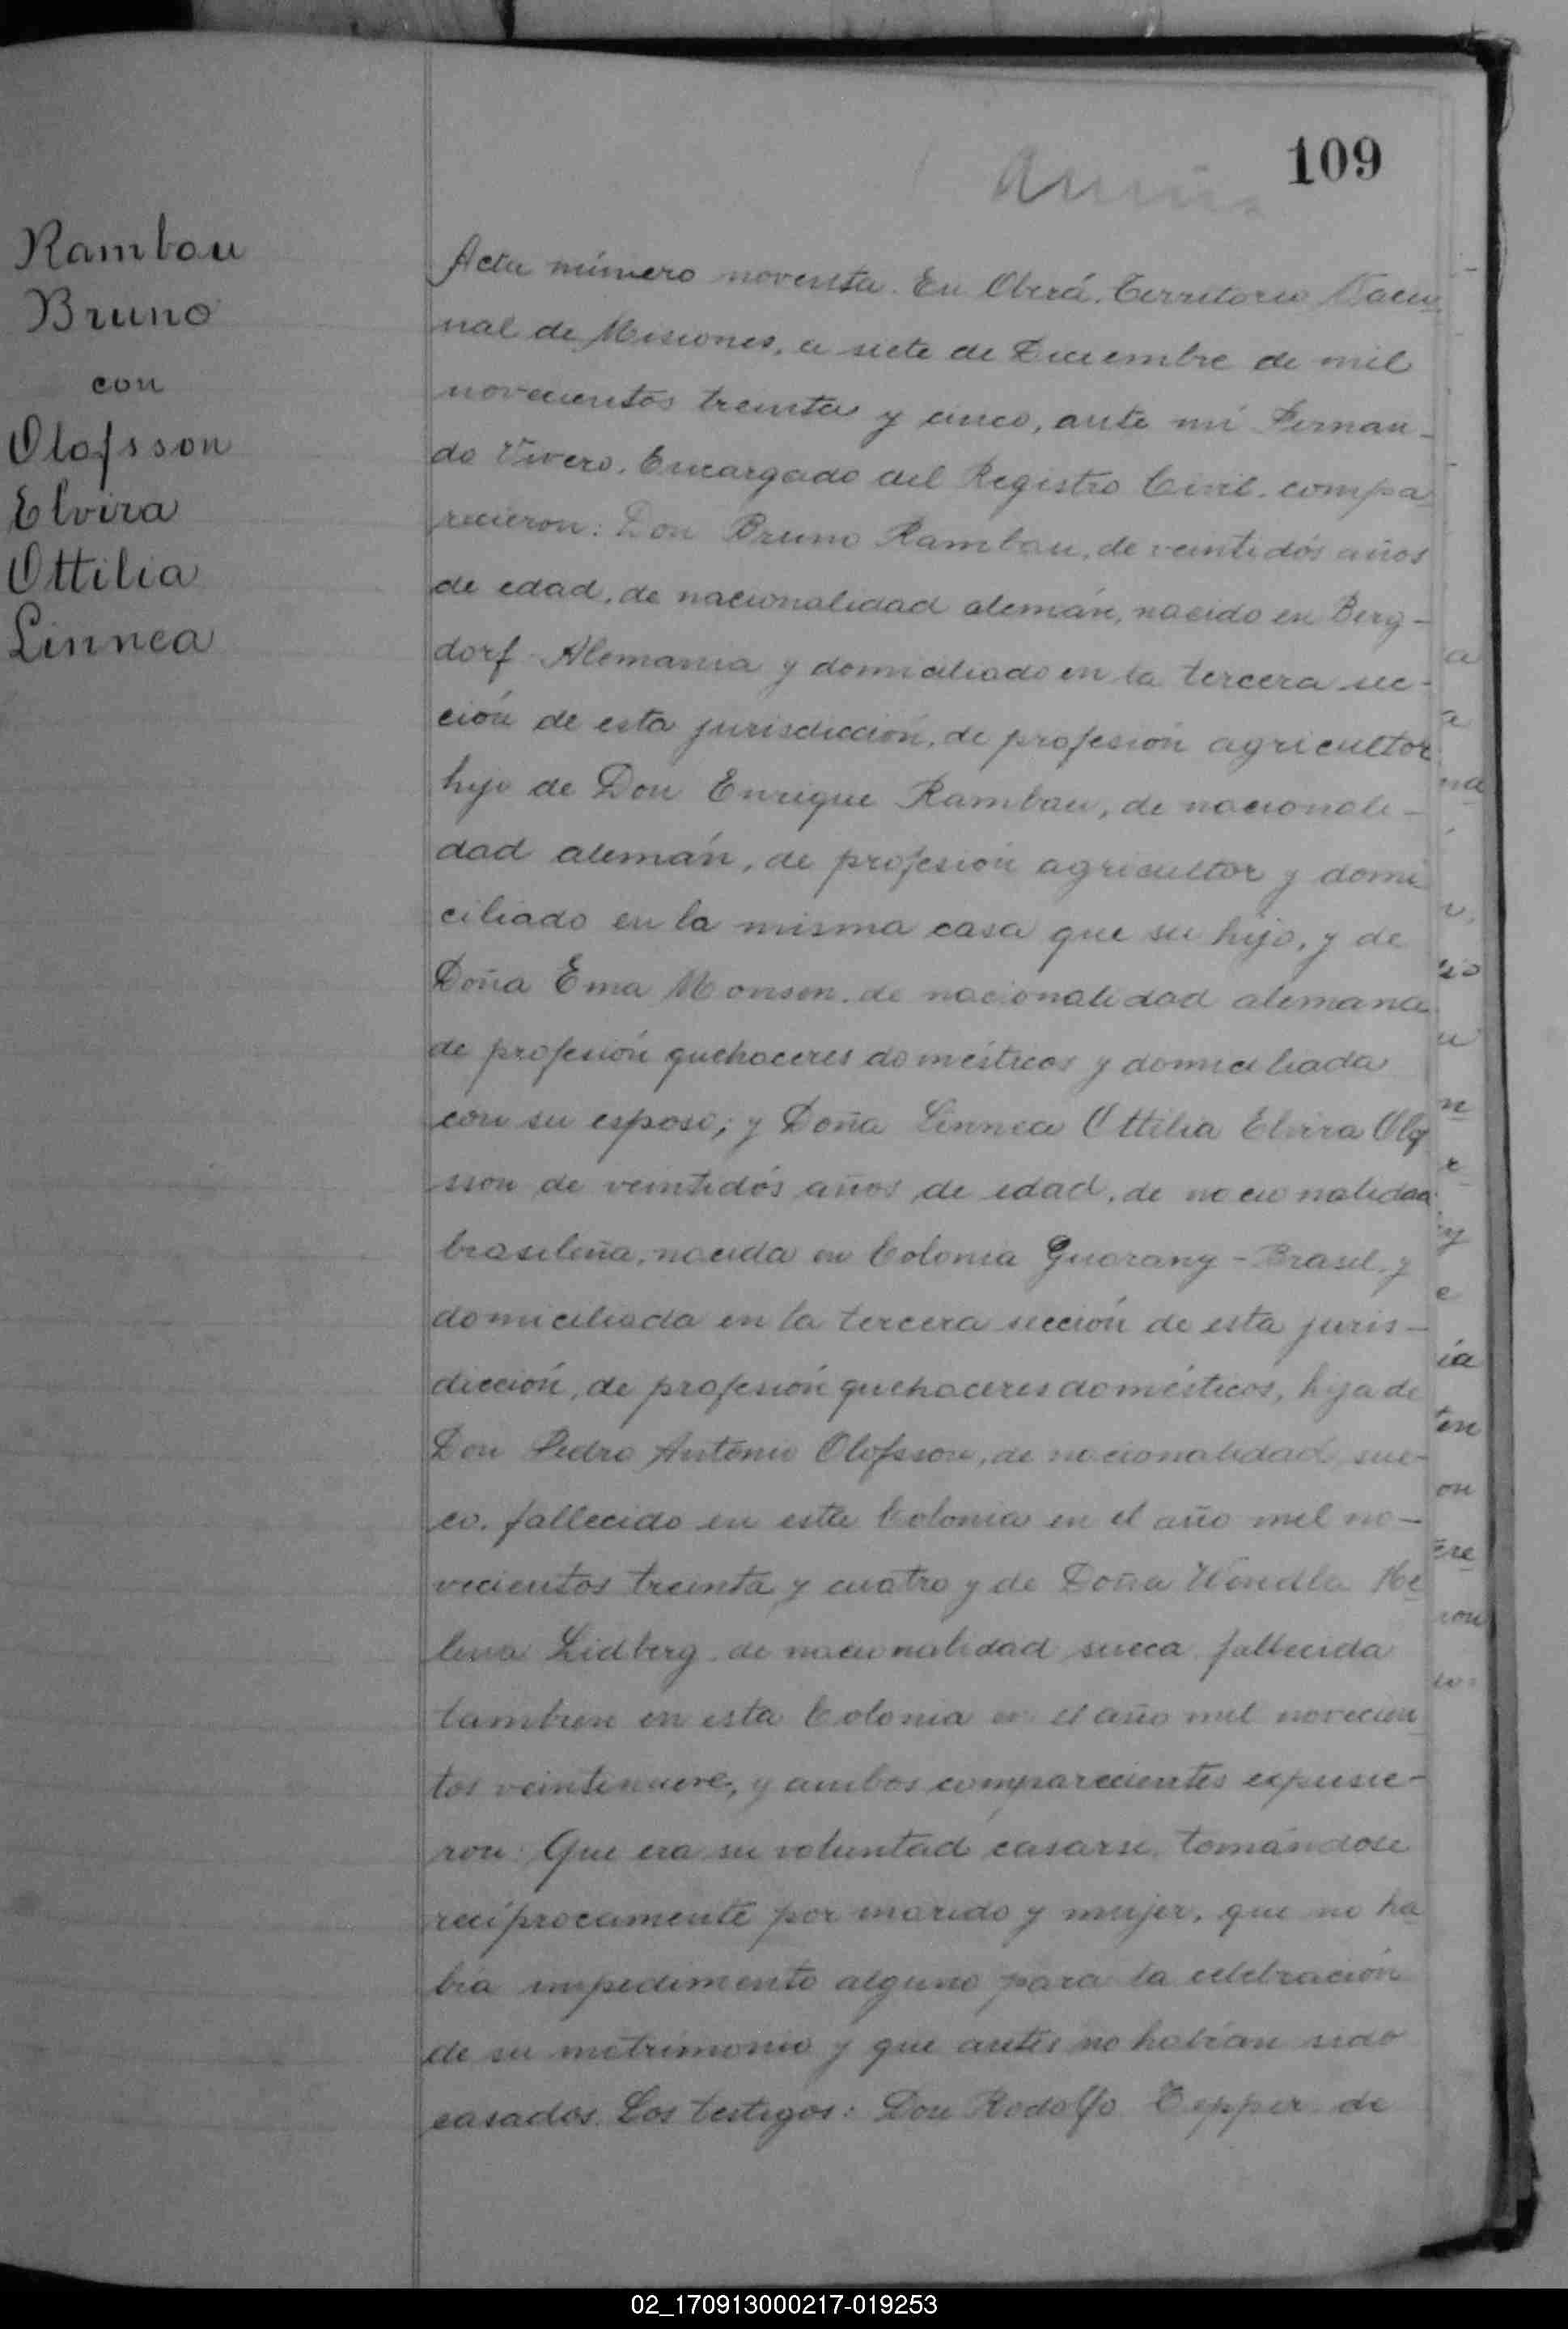 109
Rambau
Bruno
con
Olofsson
Elvira
Ottilia
Linnea
Acta número noventa. En Oberá, Territorio Nacio-
nal de Misiones, a siete de Diciembre de mil
novecientos treinta y cinco, ante mí Fernan-
do Vivero, Encargado del Registro Civil, compa-
recieron: Don Bruno Rambau, de veintidós años
de edad, de nacionalidad alemán, nacido en Berg-
dorf-Alemania y domiciliado en la tercera sec-
ción de esta jurisdicción, de profesión agricultor
hijo de Don Enrique Rambau, de nacionali-
dad alemán, de profesión agricultor y domi
ciliado en la misma casa que su hijo, y de
Doña Ema Monsen, de nacionalidad alemana
de profesión quehaceres domésticos y domiciliada
con su esposo; y Doña Linnea Ottilia Elvira Olof
sson de veintidós años de edad, de nacionalidad
brasileña, nacida en Colonia Guarany-Brasil, y
domiciliada en la tercera sección de esta juris-
dicción, de profesión quehaceres domésticos, hija de
Don Pedro Antonio Olofsson, de nacionalidad sue-
co, fallecido en esta Colonia en el año mil no-
vecientos treinta y cuatro y de Doña He
lena Lidberg, de nacionalidad sueca, fallecida
tambien en esta Colonia en el año mil novecien
tos veintinueve, y ambos comparecientes expusie-
ron: Que era su voluntad casarse, tomándose
recíprocamente por marido y mujer, que no ha
bía impedimento alguno para la celebración
de su matrimonio y que antes no habían sido
casados. Los testigos: Don Rodolfo Tepper de
02_170913000217-019253